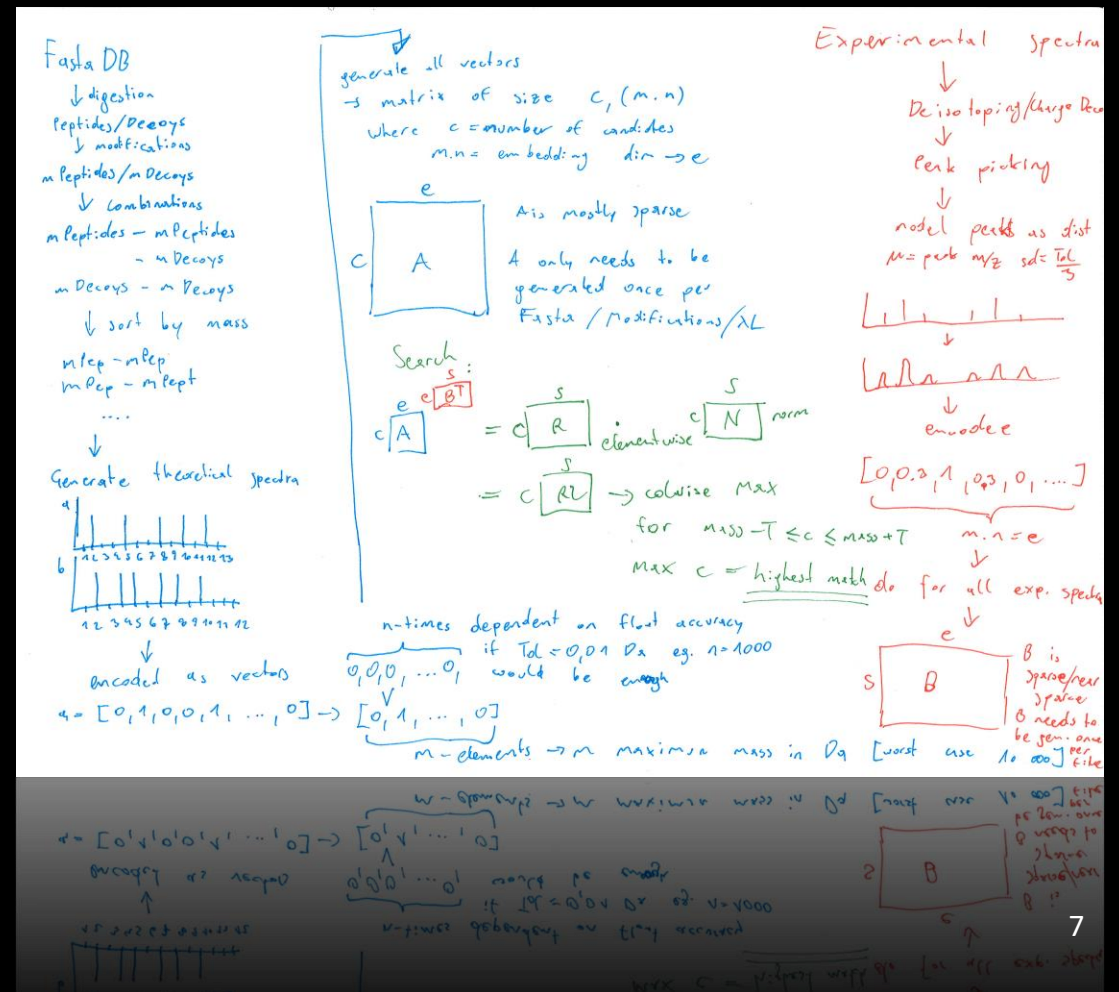 Fasta DB
digestion
Peptides/Decoys
modifications
mPeptides/mDecoys
combinations
mPeptides - mPeptides
- mDecoys
mDecoys - mDecoys
sort by mass
mPep - mPep
mPep - mPept
....
Generate theoretical spectra
a
1 2 3 4 5 6 7 8 9 10 11 12 13
b
1 2 3 4 5 6 7 8 9 10 11 12
encoded as vectors
a = [0,1,0,0,1, ..., 0] → [0, 1, ..., 0]
generate all vectors
→ matrix of size c, (m.n)
where c = number of candidates
m.n = embedding dim → e
e
c A
A is mostly sparse
A only needs to be
generated once per
Fasta / Modifications / XL
Search:
e
c A
s
e BT
s
= c R
elementwise
s
c N norm
s
= c R2 → colwise max
for mass -T ≤ c ≤ mass +T
max c = highest match
n-times dependent on float accuracy
if Tol = 0,01 Da eg. n=1000
0,0,0, ... 0, would be enough
m-elements → m maximum mass in Da [worst case 10 000]
Experimental spectra
Deisotoping/Charge Deco
Peak picking
model peaks as dist
μ = peak m/z sd = Tol/3
encode e
[0,0.3,1,0,3,0, ....]
m.n = e
do for all exp. spectra
e
s B
B is
sparse/near
sparse
B needs to
be gen. once
per
file
7